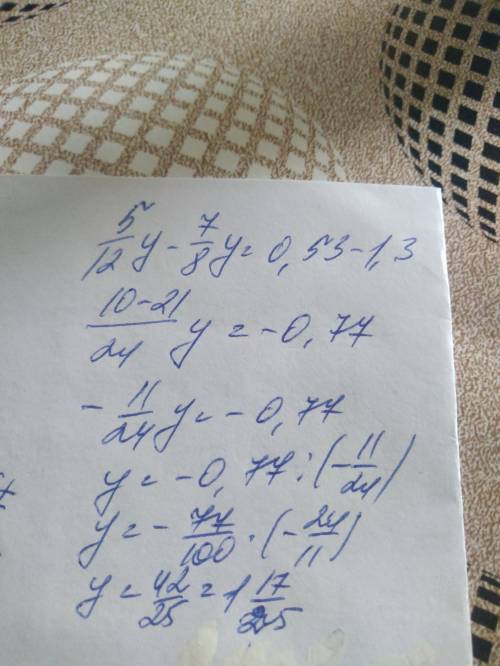 5/12 y - 7/8 y = 0,53 - 1,3
(10-21)/24 y = -0,77
- 11/24 y = -0,77
y = -0,77 : (-11/24)
y = - 77/100 · (-24/11)
y = 42/25 = 1 17/25